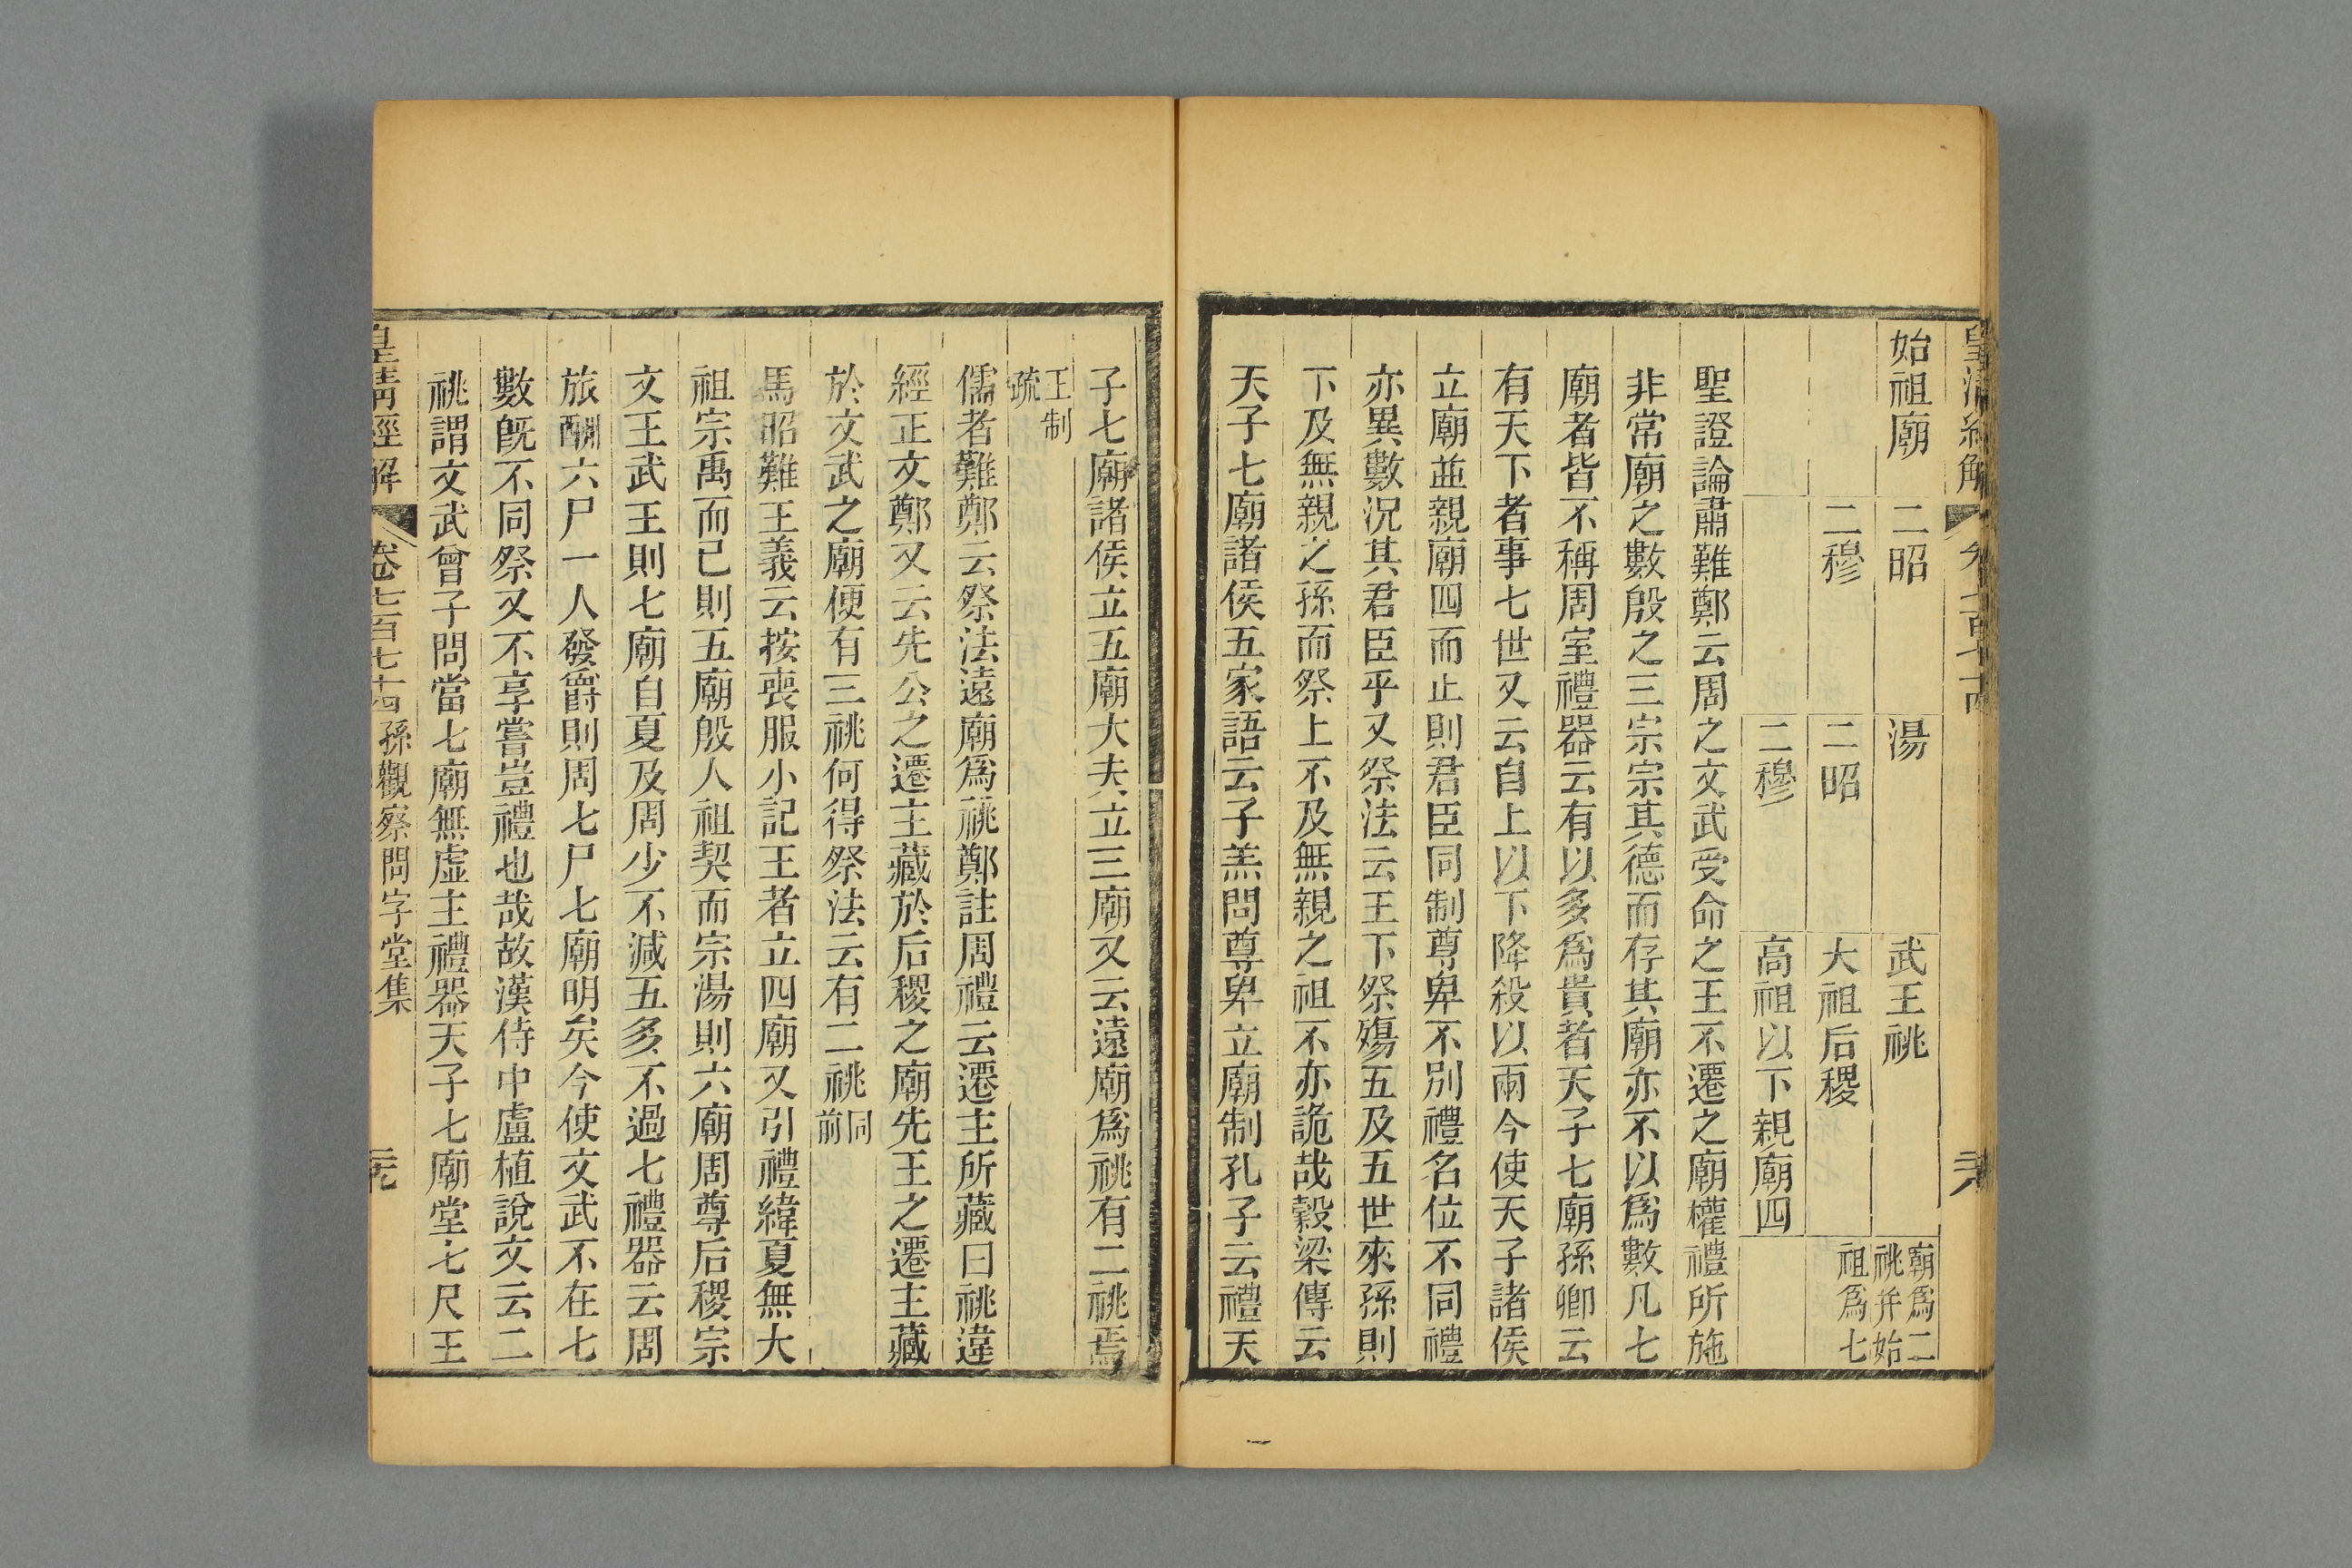 皇清經解 卷七百七十四
始祖廟 二昭 湯 武王祧 廟爲二祧并始祖爲七
二穆 二昭 大祖后稷
二穆 高祖以下親廟四
聖證論肅難鄭云周之文武受命之王不遷之廟權禮所施
非常廟之數殷之三宗宗其德而存其廟亦不以爲數凡七
廟者皆不稱周室禮器云有以多爲貴者天子七廟孫卿云
有天下者事七世又云自上以下降殺以兩今使天子諸侯
立廟並親廟四而止則君臣同制尊卑不別禮名位不同禮
亦異數況其君臣乎又祭法云王下祭殤五及五世來孫則
下及無親之孫而祭上不及無親之祖不亦詭哉穀梁傳云
天子七廟諸侯五家語云子羔問尊卑立廟制孔子云禮天
子七廟諸侯立五廟大夫立三廟又云遠廟爲祧有二祧焉
王制疏
儒者難鄭云祭法遠廟爲祧鄭註周禮云遷主所藏曰祧違
經正文鄭又云先公之遷主藏於后稷之廟先王之遷主藏
於文武之廟便有三祧何得祭法云有二祧同前
馬昭難王義云按喪服小記王者立四廟又引禮緯夏無大
祖宗禹而已則五廟殷人祖契而宗湯則六廟周尊后稷宗
文王武王則七廟自夏及周少不減五多不過七禮器云周
旅酬六尸一人發爵則周七尸七廟明矣今使文武不在七
數旣不同祭又不享嘗豈禮也哉故漢侍中盧植說文云二
祧謂文武曾子問當七廟無虛主禮器天子七廟堂七尺王
皇清經解 卷七百七十四 孫觀察問字堂集 二九